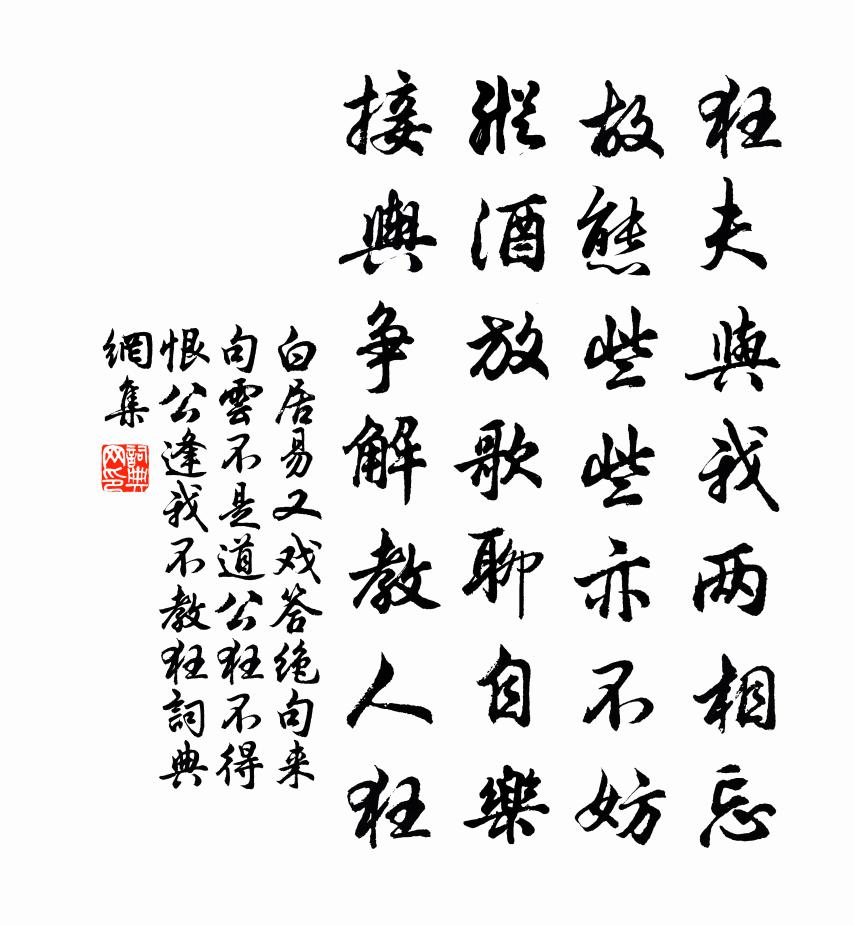 狂夫與我两相忘
故態些些亦不妨
縱酒放歌聊自樂
接輿争解教人狂
白居易又戏答绝句来
句雲不是道公狂不得
恨公逢我不教狂詞典
網集
詞典
网印